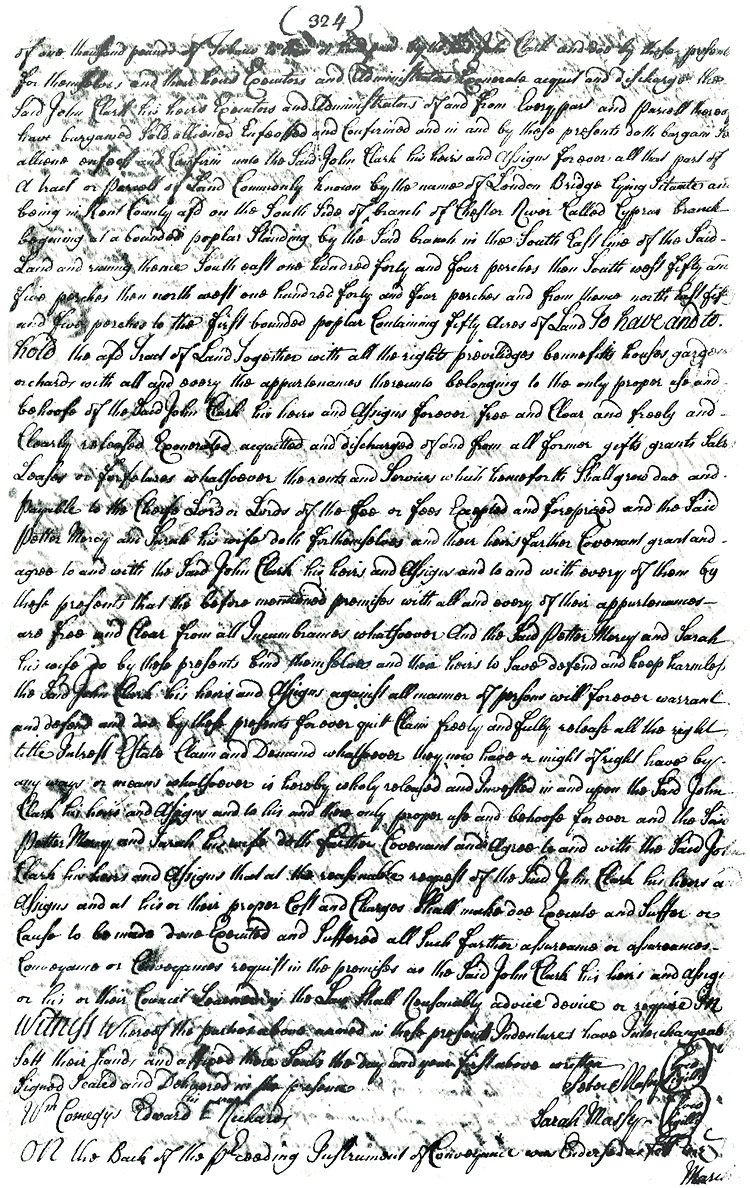 (324)
of one thousand pounds of Tobaco to them in hand paid by the said John Clark and doe by these present
for themselves and their heirs Executors and Administrators Exonerate acquit and discharge the
Said John Clark his heirs Executors and Administrators of and from Every part and parcell thereof
have bargained Sold aliened Enfeoffed and Confirmed and in and by these presents doth bargain So
aliene enfeoff and Confirm unto the Said John Clark his heirs and Assigns forever all that part of
A tract or parcell of Land Commonly known by the name of London Bridge lying Situate an
being in Kent County afd on the South Side of branch of Chester River Called Cyprus branch
begining at a bounded poplar Standing by the Said branch in the South East line of the Said
Land and runing thence South east one hundred forty and four perches then South west fifty an
five perches then north west one hundred forty and four perches and from thence north East fif
and five perches to the first bounded poplar Containing fifty Acres of Land To have and to
hold the afd Tract of Land together with all the rights previlidges bennefits houses garden
orchards with all and every the appurtenances thereunto belonging to the only proper use and
behoofe of the Said John Clark his heirs and Assigns forever free and Clear and freely and
Clearly released Exonerated acquitted and discharged of and from all former gifts grants Sale
Leases or forfeitures whatsoever the rents and Service which henceforth Shall grow due and
payable to the Cheife Lord or Lords of the fee or fees Excepted and foreprized and the Said
Petter Mercy and Sarah his wife doth for themselves and their heirs farther Covenant grant and
agree to and with the Said John Clark his heirs and Assigns and to and with every of them by
these presents that the before mentioned premises with all and every of their appurtenances
are free and Clear from all Incumbrances whatsoever And the Said Petter Mercy and Sarah
his wife do by these presents bind themselves and their heirs to Save defend and keep harmless
the Said John Clark his heirs and Assigns against all manner of persons will forever warrant
and defend and doe by these presents forever quitt Claim freely and fully release all the right
title Intrest Estate Claim and Demand whatsoever they now have or might of right have by
any ways or means whatsoever is hereby wholy released and Invested in and upon the Said John
Clark his heirs and Assigns and to his and their only proper use and behoofe forever and the Said
Petter Mercy and Sarah his wife doth farther Covenant and Agree to and with the Said John
Clark his heirs and Assigns that at the reasonable request of the Said John Clark his heirs a
Assigns and at his or their proper Cost and Charges Shall make doe Execute and Suffer or
Cause to be made done Executed and Suffered all Such farther assurance or assurances
Conveyance or Conveyances requisit in the premises as the Said John Clark his heirs and Assigs
or his or their Council Learned in the Law Shall Reasonably advice device or require In
Witness Whereof the parties above named in these present Indentures have Interchangeab
sett their hands and affixed their Seals the day and year first above written
Signed Sealed and Delivered in the presence Peter Massy
Wm Comegys Edward E Richards Sarah Massy
his mark
On the Back of the preceeding Instrument of Conveyance was Endorsed as foll